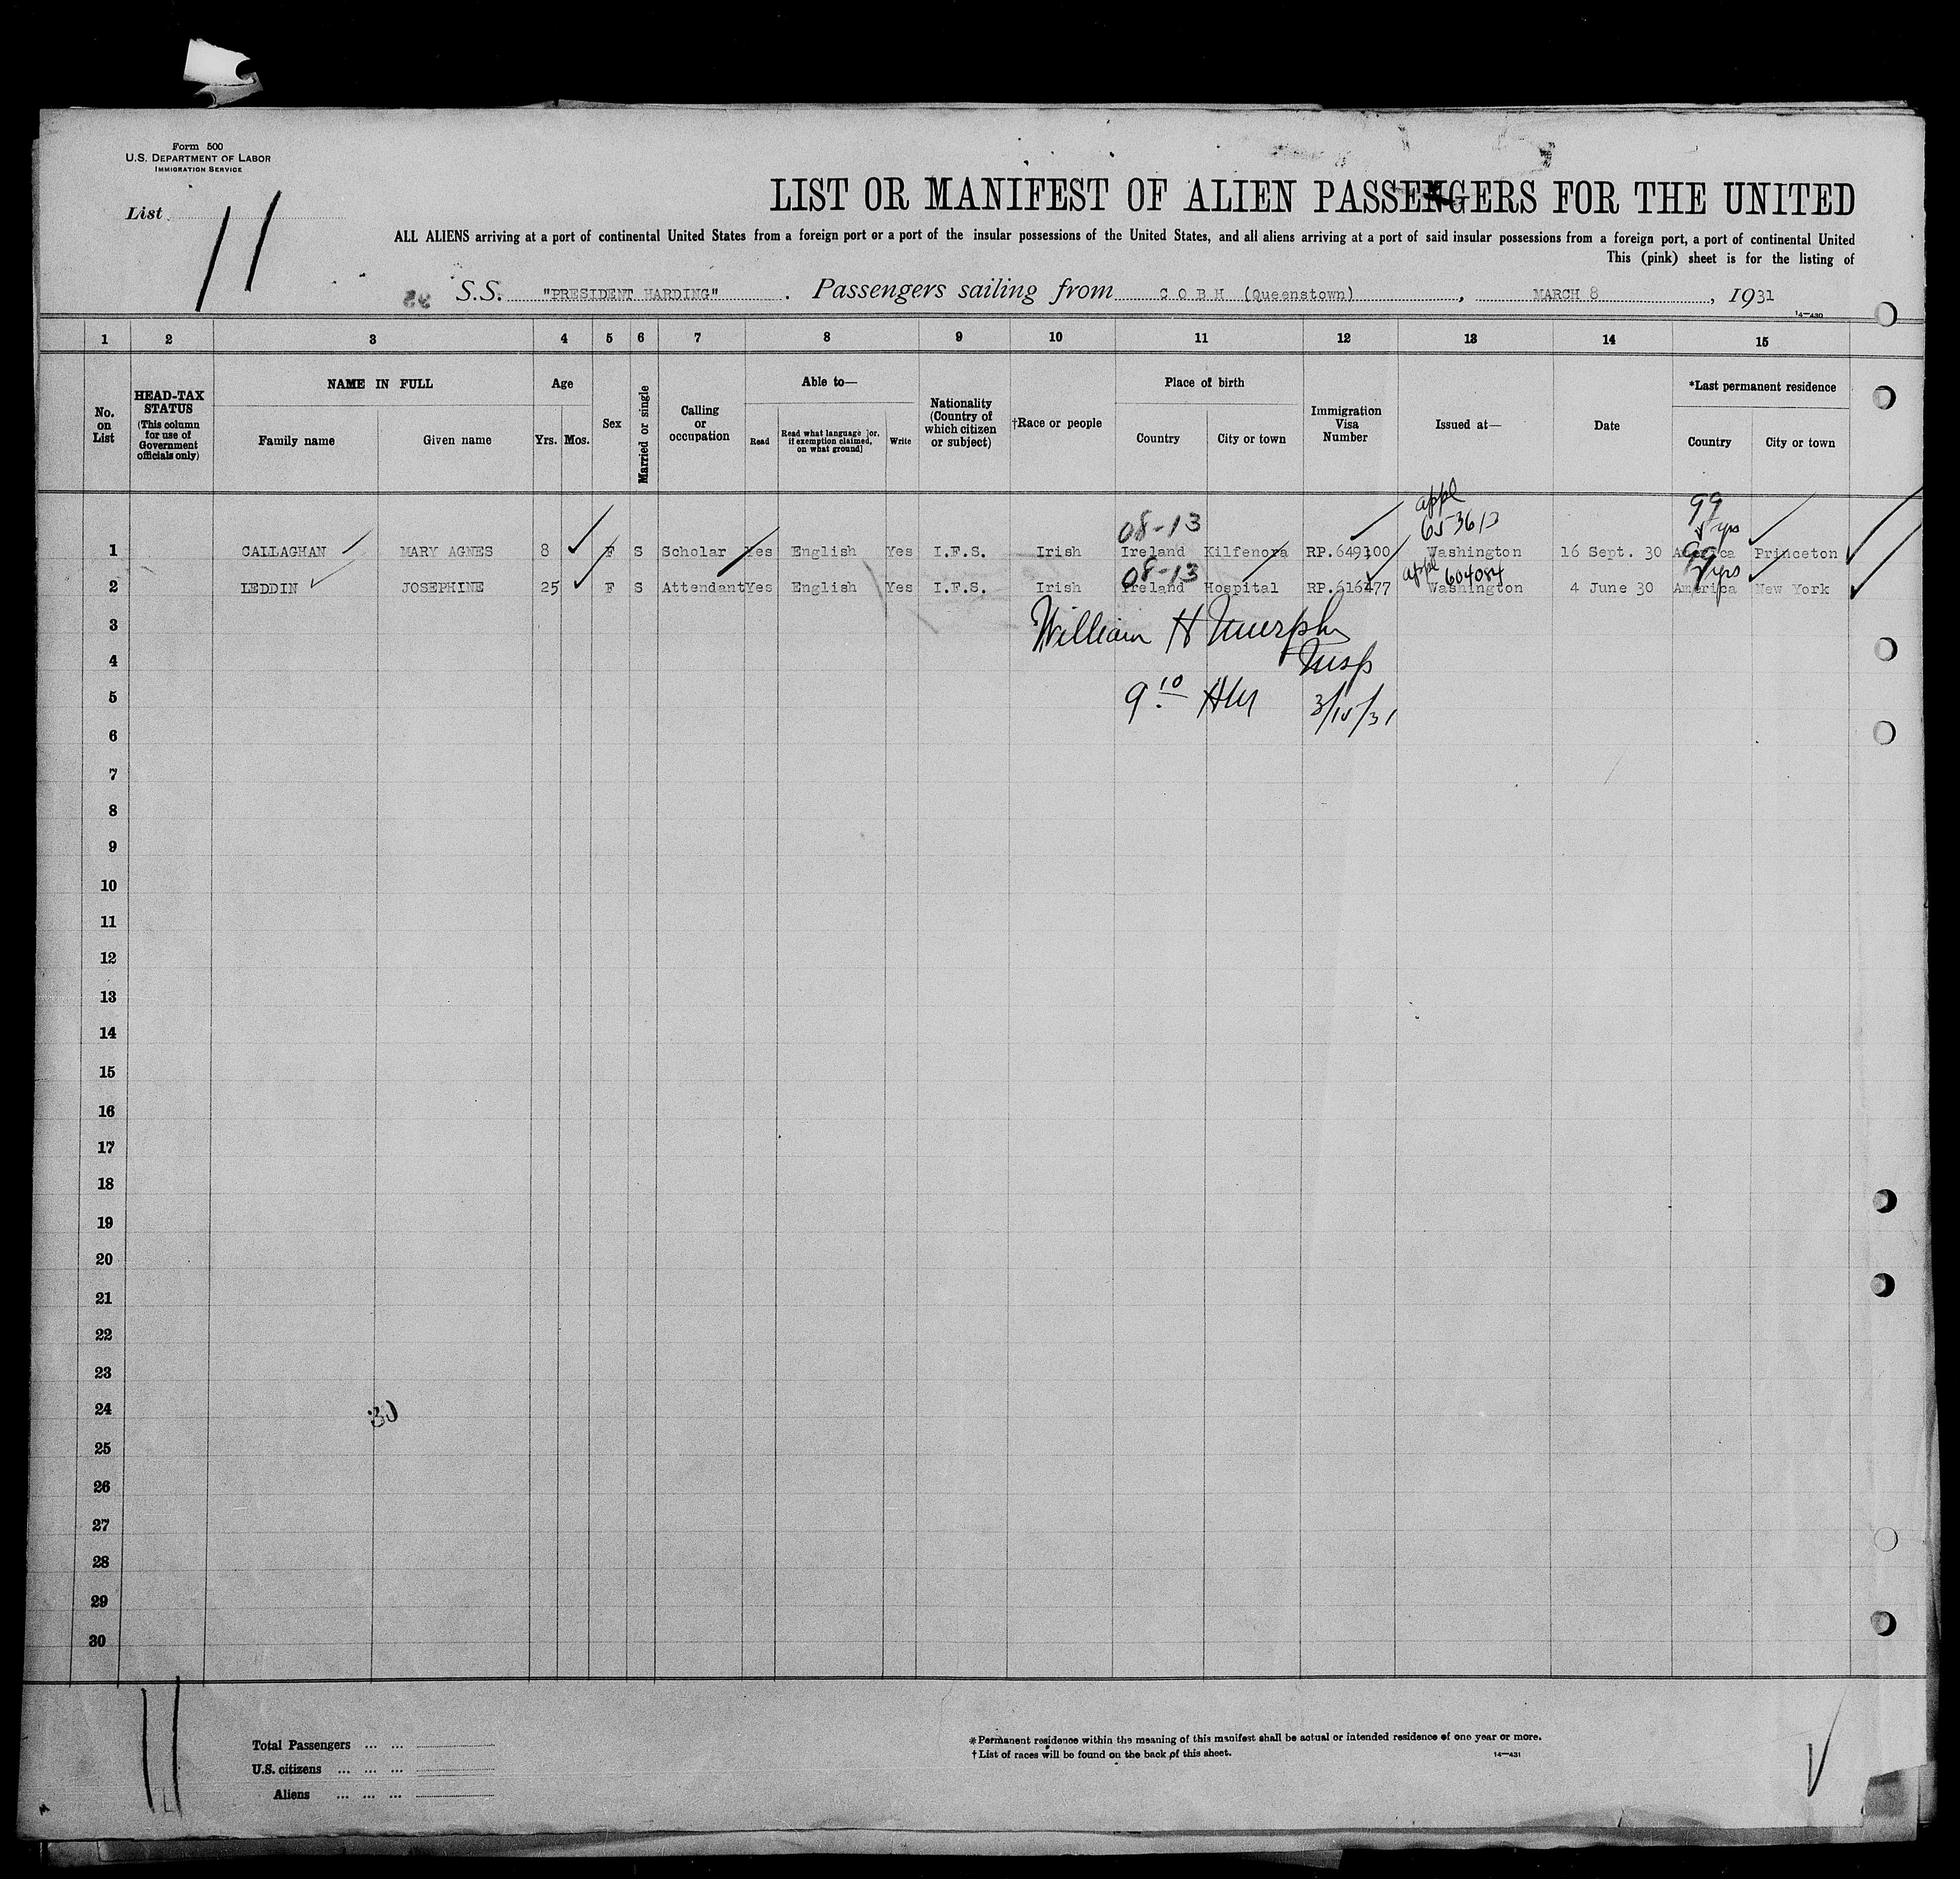 Form 500
U.S. DEPARTMENT OF LABOR
IMMIGRATION SERVICE
List 11
LIST OR MANIFEST OF ALIEN PASSENGERS FOR THE UNITED
ALL ALIENS arriving at a port of continental United States from a foreign port or a port of the insular possessions of the United States, and all aliens arriving at a port of said insular possessions from a foreign port, a port of continental United
This (pink) sheet is for the listing of
S.S. "PRESIDENT HARDING". Passengers sailing from C O B H (Queenstown), MARCH 8, 1931
14—430
1 2 3 4 5 6 7 8 9 10 11 12 13 14 15
No. on List
HEAD-TAX STATUS (This column for use of Government officials only)
NAME IN FULL
Family name Given name
Age
Yrs. Mos.
Sex
Married or single
Calling or occupation
Able to—
Read Read what language [or, if exemption claimed, on what ground] Write
Nationality (Country of which citizen or subject)
†Race or people
Place of birth
Country City or town
Immigration Visa Number
Issued at—
Date
*Last permanent residence
Country City or town
appl
08-13 99
yrs
1 CALLAGHAN MARY AGNES 8 F S Scholar Yes English Yes I.F.S. Irish Ireland Kilfenora RP.649100 Washington 16 Sept. 30 America Princeton
08-13 appl 604084 99 yrs
2 LEDDIN JOSEPHINE 25 F S Attendant Yes English Yes I.F.S. Irish Ireland Hospital RP.616477 Washington 4 June 30 America New York
3 William H Murphy
4 Insp
5 9 10 AM 3/15/31
6
7
8
9
10
11
12
13
14
15
16
17
18
19
20
21
22
23
24 30
25
26
27
28
29
30
11
Total Passengers ... ...
U.S. citizens ... ... ...
Aliens ... ... ...
*Permanent residence within the meaning of this manifest shall be actual or intended residence of one year or more.
†List of races will be found on the back of this sheet.
14—431